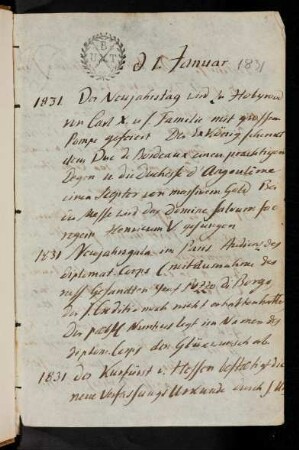 BUXT
d 1. Januar 1831
1831 Der Neujahrstag wird zu Holyrood
von Carl X. u s. Familie mit grossem
Pompe gefeiert Der König schenkt
dem Duc de Bordeaux einen prächtigen
Degen u die Duchesse d'Angoulême
einen Scepter von massivem Gold Bei
der Messe wird das Domine salvum fac
regem Henricum V gesungen
1831 Neujahrsgala im Paris des
diplomat. Corps (mit Ausnahme des
russ Gesandten Pozzo di Borgo,
der s. Creditiv noch nicht erhalten hatte)
Der päpstl Nuncius legt im Namen des
diplom. Corps den Glückwunsch ab
1831 der Kurfürst v. Hessen
neue Verfassungs Urkunde